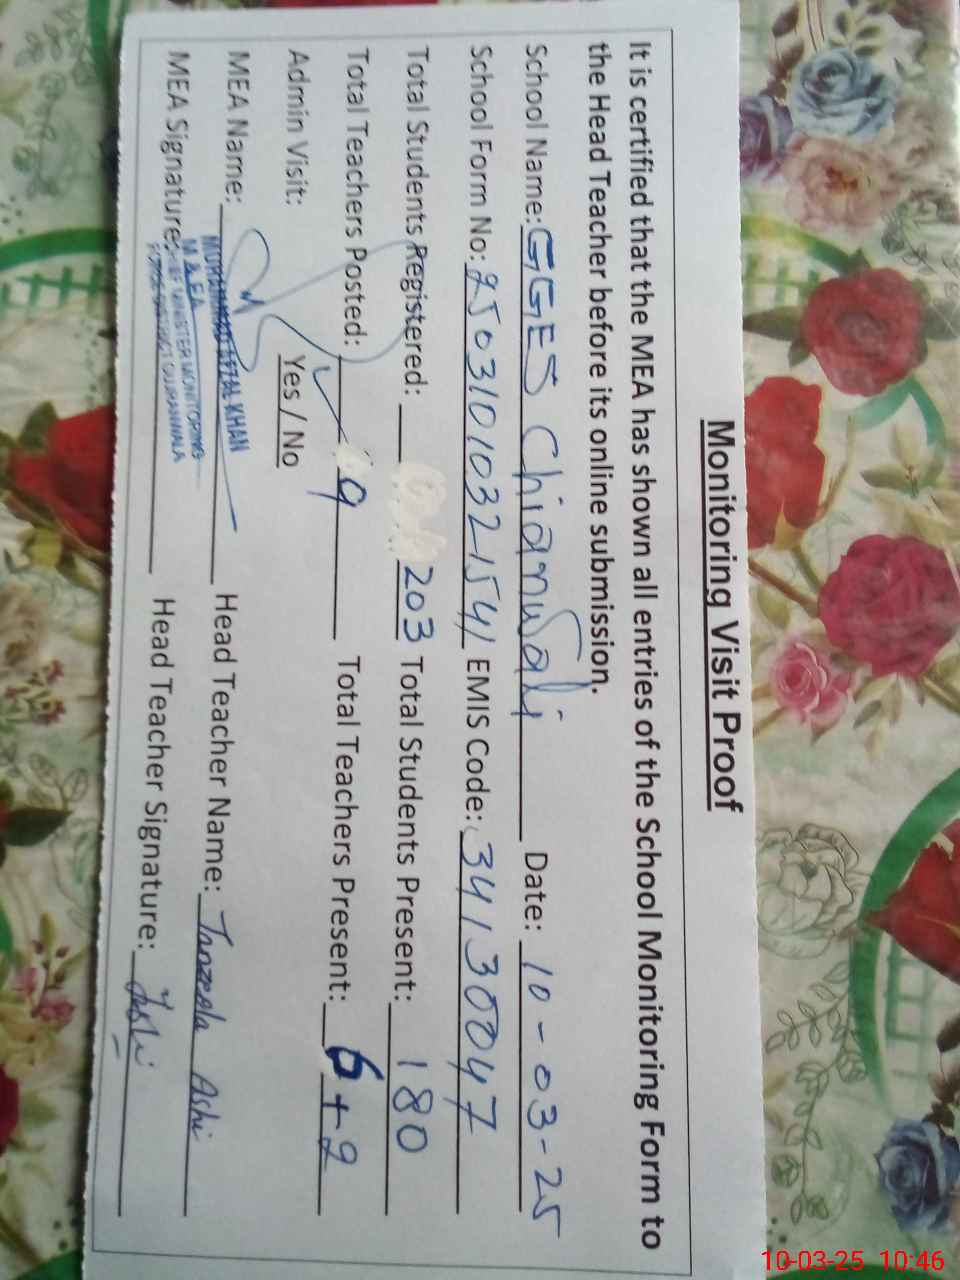 Monitoring Visit Proof
It is certified that the MEA has shown all entries of the School Monitoring Form to
the Head Teacher before its online submission.
School Name: GGES Chianwali Date: 10-03-25
School Form No: 25031010321541 EMIS Code: 34130047
Total Students Registered: 203 Total Students Present: 180
Total Teachers Posted: 9 Total Teachers Present: 6+2
Admin Visit: Yes / No
MEA Name: MUHAMMAD AFZAL KHAN Head Teacher Name: Tanzeela Ashi
M.A.E.A
MEA Signature: CHIEF MINISTER MONITORING Head Teacher Signature:
FORCE DISTRICT GUJRANWALA
10-03-25 10:46